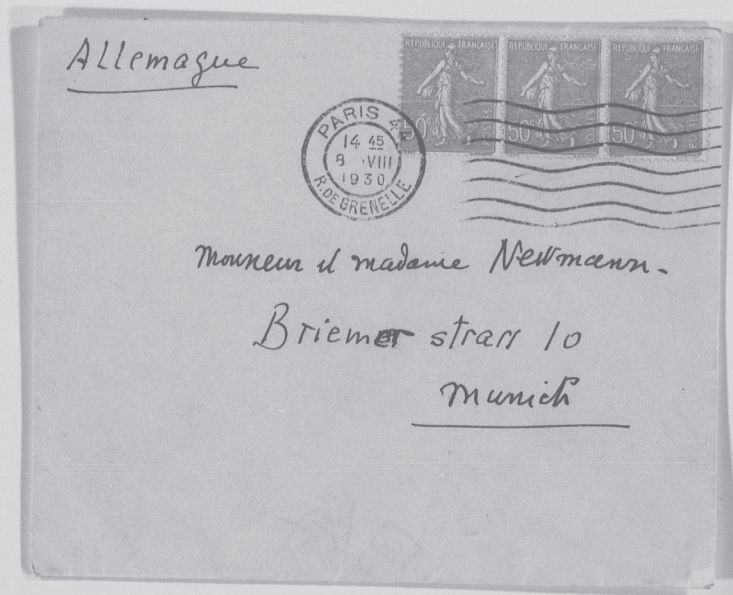 Allemagne
RÉPUBLIQUE FRANÇAISE RÉPUBLIQUE FRANÇAISE RÉPUBLIQUE FRANÇAISE
50c 50c 50c
POSTES POSTES
PARIS 44
14 45
8 VIII
1930
R. DE GRENELLE
Monsieur et madame Newmann.
Briemer strass 10
Munich